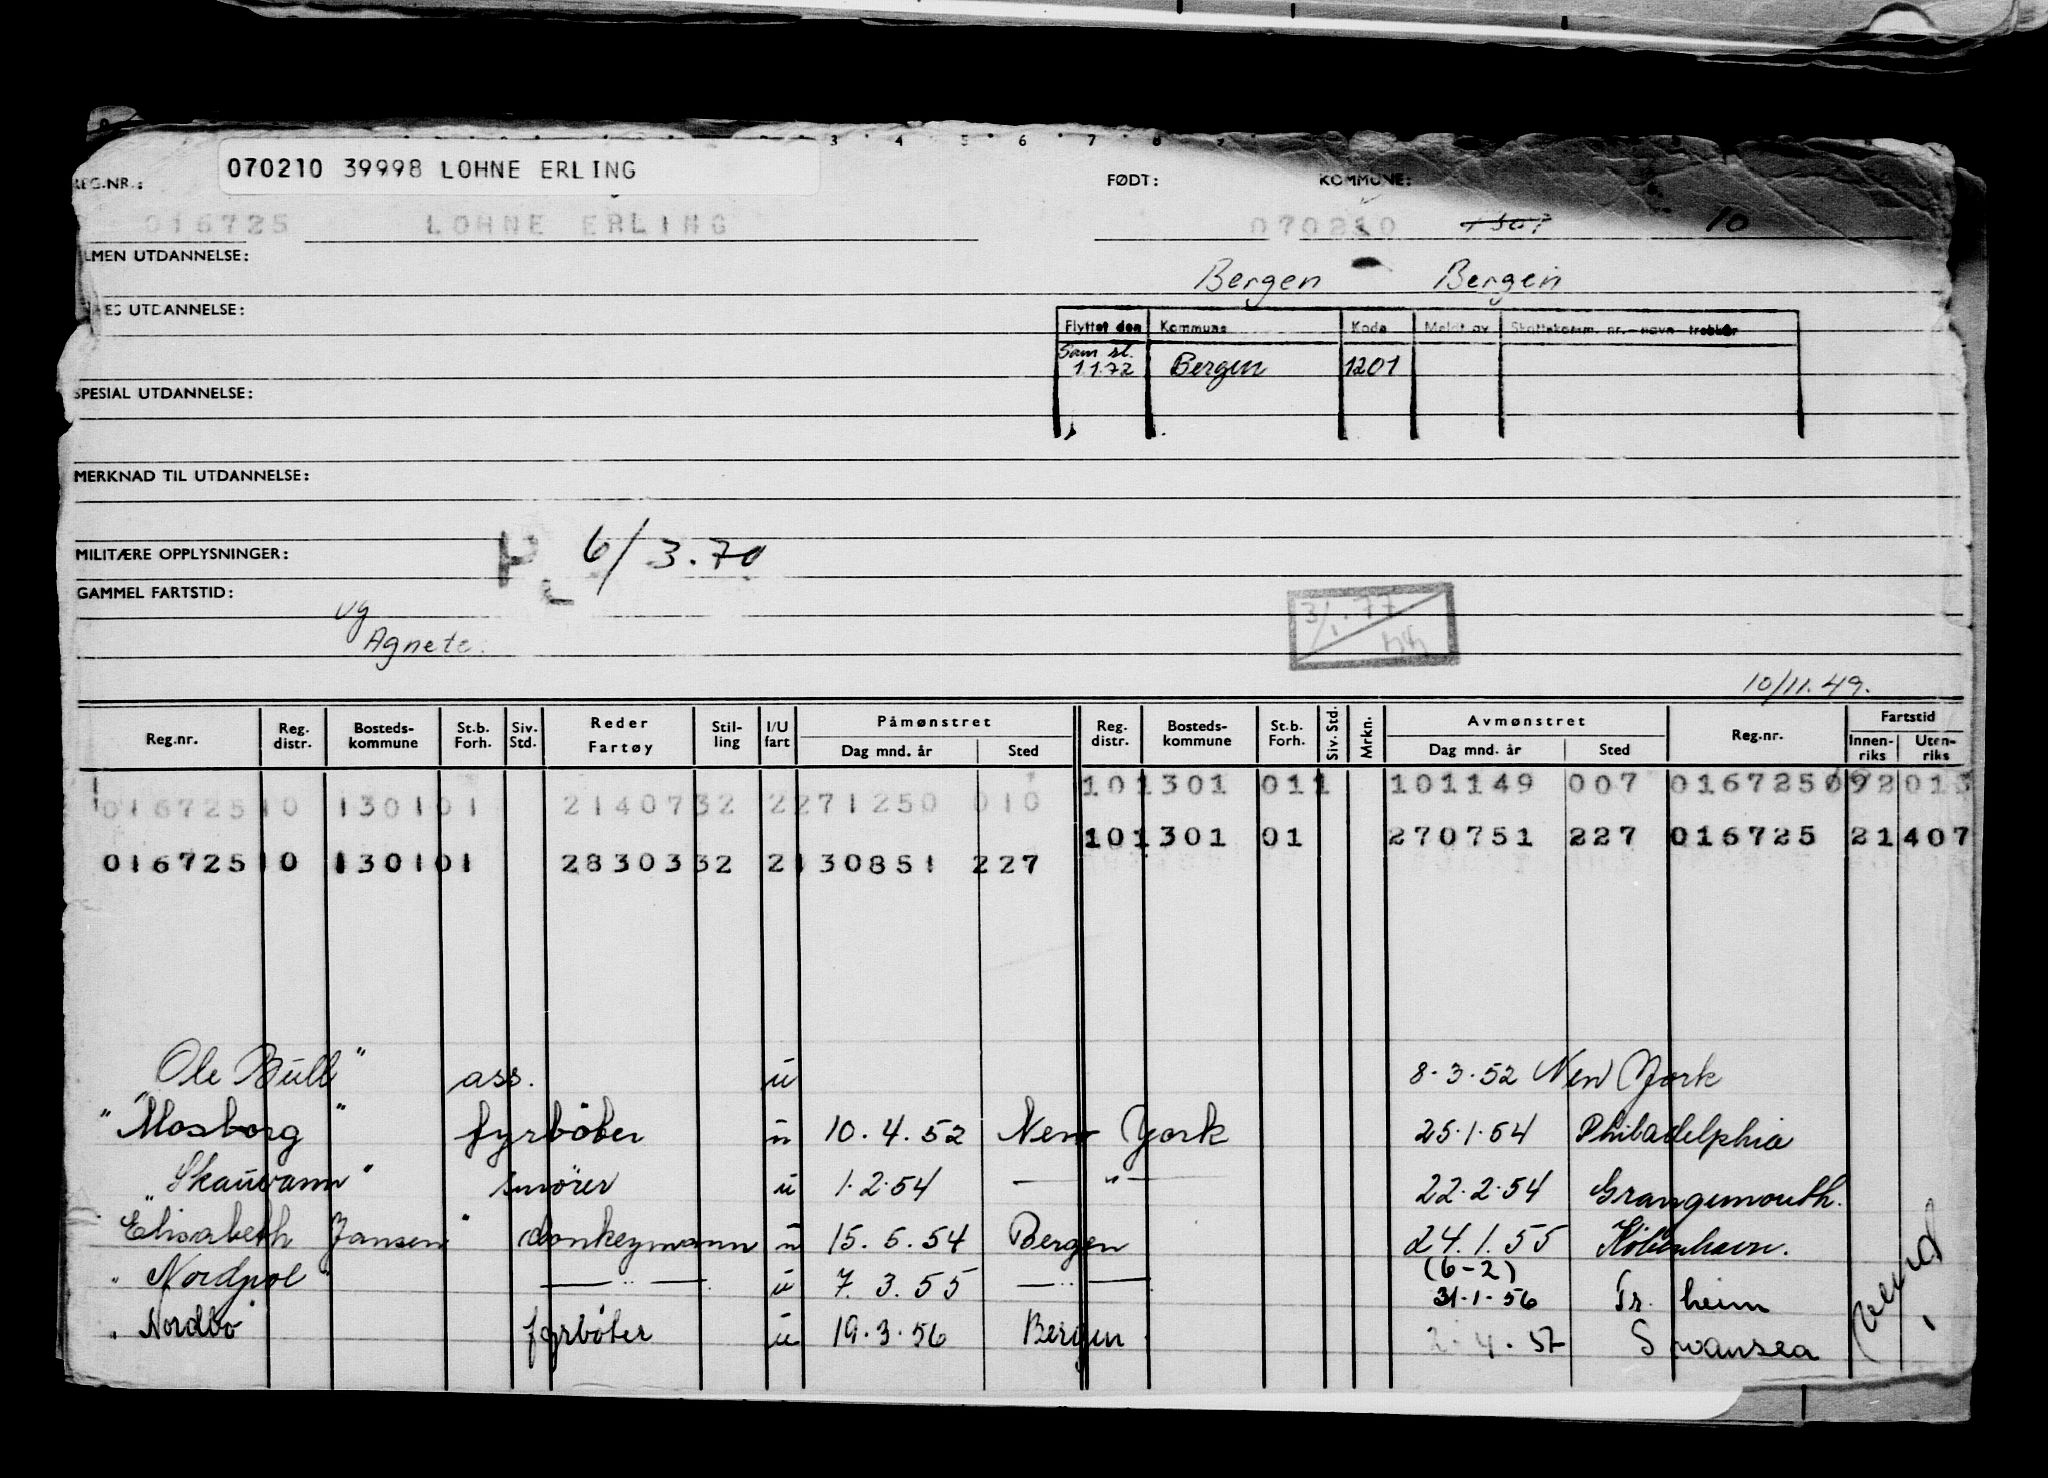 3 4 5 6 7 8 9
070210 39998 LOHNE ERLING
REG.NR.: FØDT: KOMMUNE:
016725 LOHNE ERLING 070210 10
LMEN UTDANNELSE:
Bergen Bergen
ES UTDANNELSE:
Flyttet den Kommune Kode Meldt av Skattekomm. nr. – navn – trekkår
Sam sl.
1.1.72 Bergen 1201
SPESIAL UTDANNELSE:
MERKNAD TIL UTDANNELSE:
MILITÆRE OPPLYSNINGER: 6/3.70
GAMMEL FARTSTID:
vg
Agnete.
3/1.77
10/11.49.
Reg.nr. Reg. distr. Bosteds-kommune St.b. Forh. Siv. Std. Reder Fartøy Stil-ling I/U fart Påmønstret Dag mnd. år Sted Reg. distr. Bosteds-kommune St.b. Forh. Siv. Std. Mrkn. Avmønstret Dag mnd. år Sted Reg.nr. Fartstid Innen-riks Uten-riks
101301 011 101149 007 016725092013
01672510 130101 2140732 2271250 010
101301 01 270751 227 016725 21407
01672510 130101 2830332 2130851 227
"Ole Bull" ass. u 8.3.52 New York
"Mosborg" fyrbøter u 10.4.52 New York 25.1.54 Philadelphia
"Skauvann" smører u 1.2.54 —"— 22.2.54 Grangemouth.
"Elisabeth Jansen" donkeymann u 15.5.54 Bergen 24.1.55 København.
(6-2)
"Nordpol" —"— u 7.3.55 —"— 31.1.56 Tr.heim
"Nordbo" fyrbøter u 19.3.56 Bergen 2.4.57 Swansea
vend